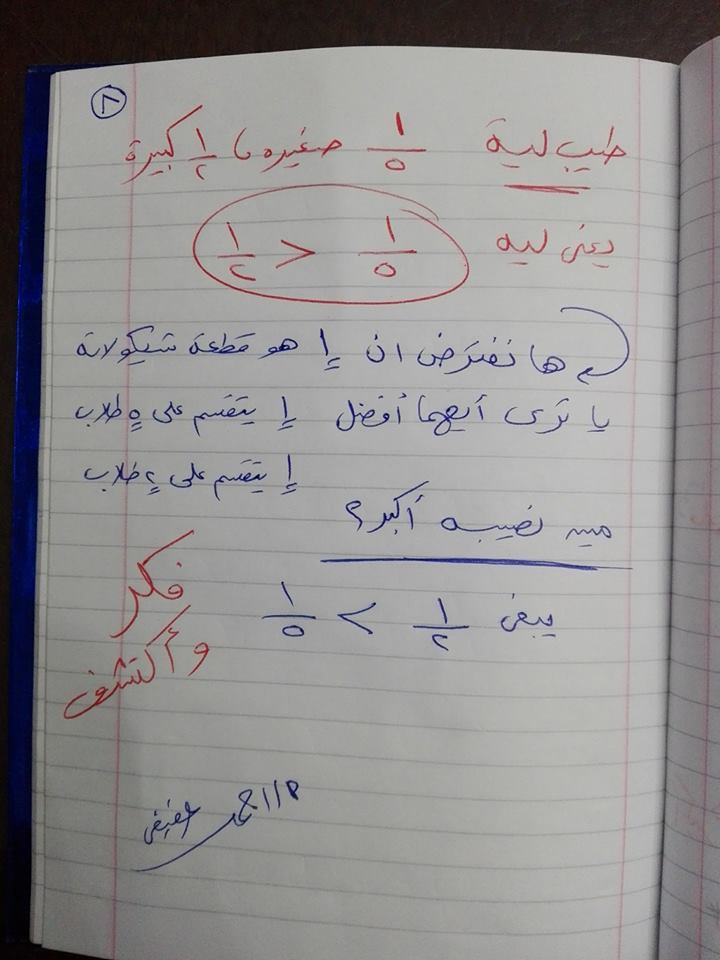 ٨
طيب ليه ١/٥ صغيره و ١/٢ كبيرة
يعنى ليه ١/٥ < ١/٢
ها نفترض ان إ هو قطعة شيكولاته
يا ترى أيهما أفضل إ يتقسم على ٥ طلاب
إ يتقسم على ٢ طلاب
مين نصيبه أكبر؟
يبقى ١/٢ > ١/٥
فكر
وأكتشف
عفيفى